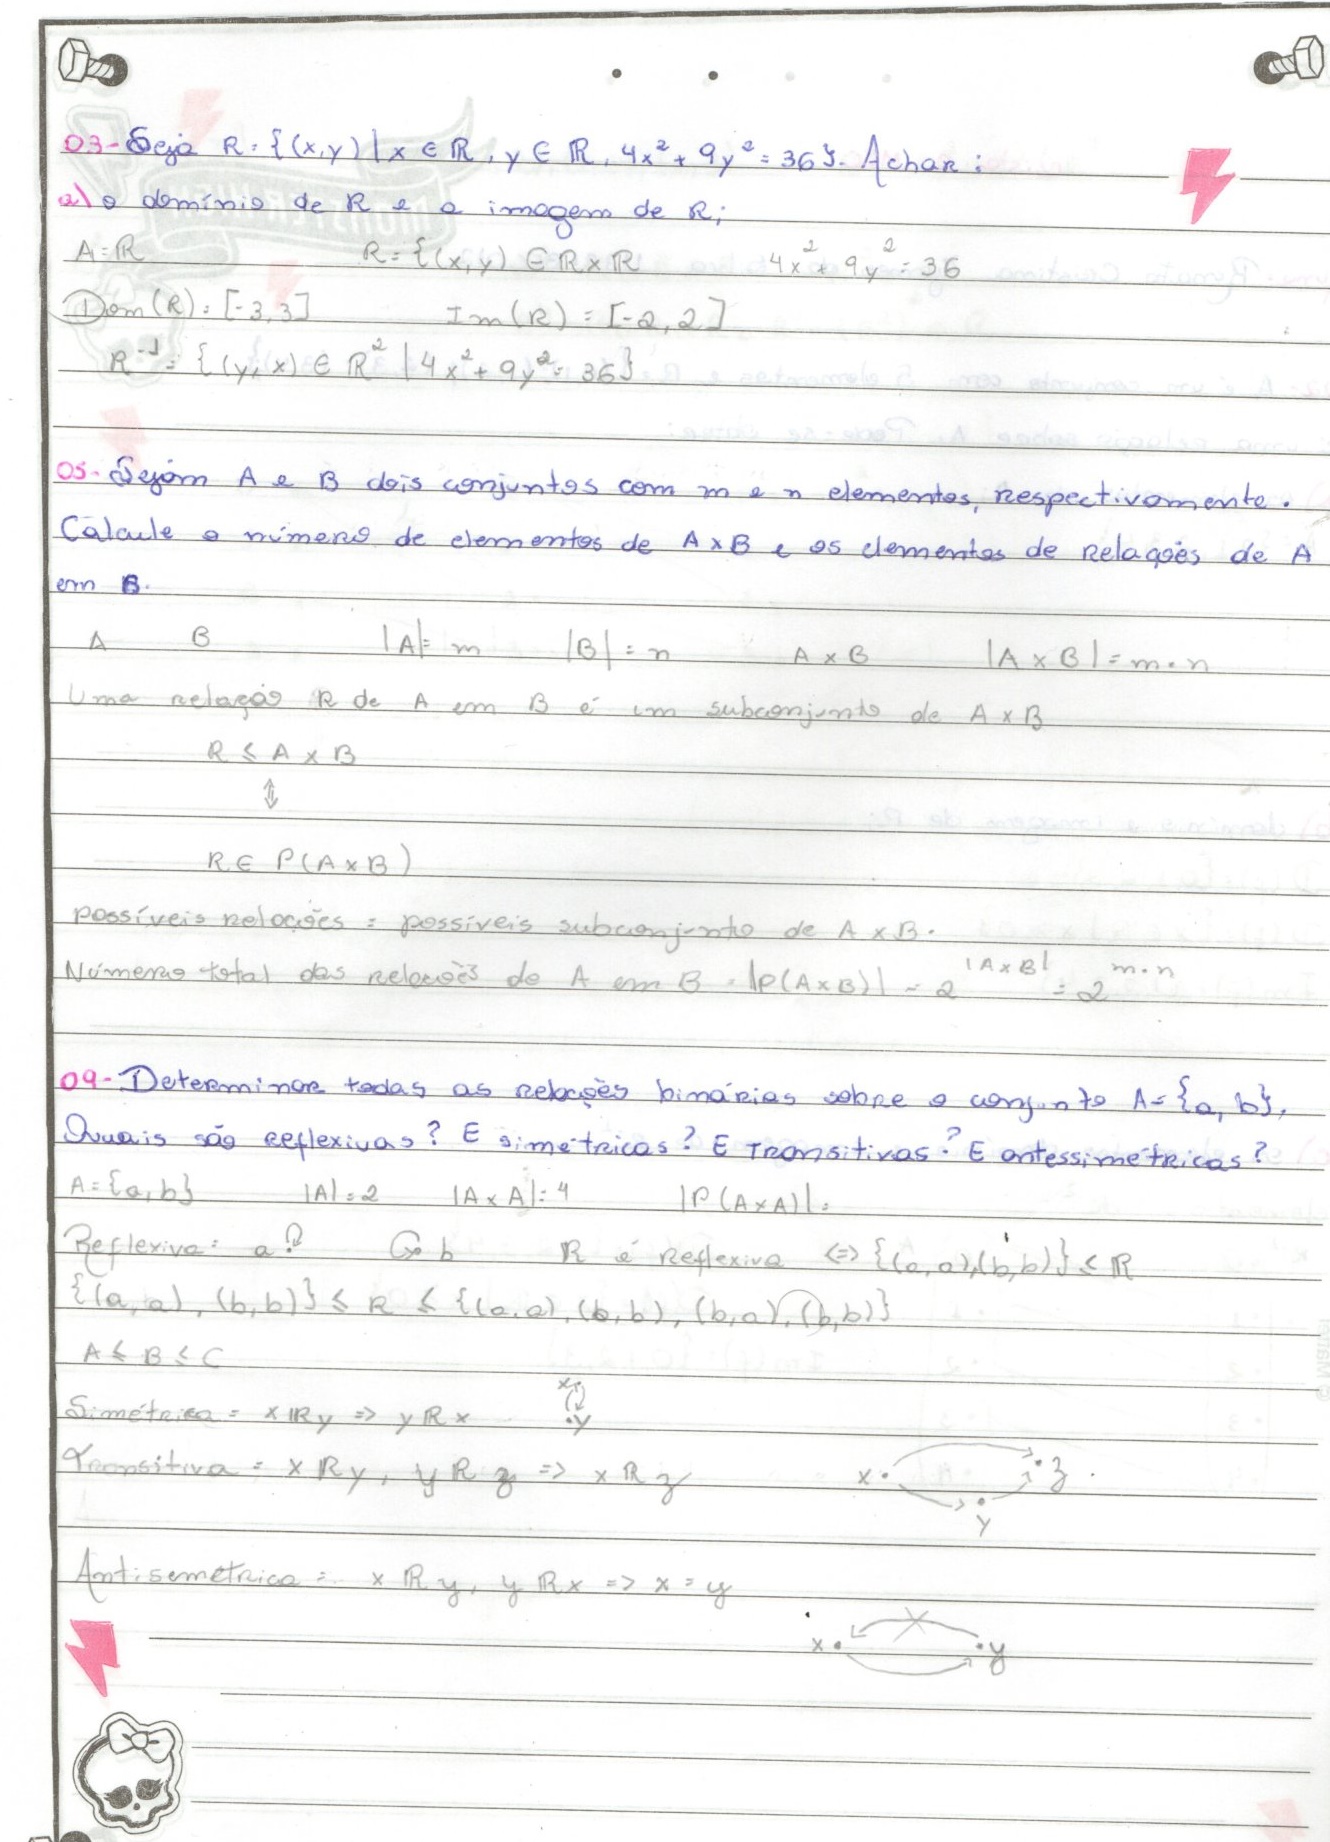 03- Seja R = {(x,y) | x ∈ ℝ, y ∈ ℝ, 4x² + 9y² = 36}. Achar:
a) o domínio de R e a imagem de R;
A = ℝ R = {(x,y) ∈ ℝ x ℝ 4x² + 9y² = 36
Dom(R) = [-3,3] Im(R) = [-2,2]
R⁻¹ = {(y,x) ∈ ℝ² | 4x² + 9y² = 36}
05- Sejam A e B dois conjuntos com m e n elementos, respectivamente.
Calcule o número de elementos de A x B e os elementos de relações de A
em B.
A B |A| = m |B| = n A x B |A x B| = m.n
Uma relação R de A em B é um subconjunto de A x B
R ≤ A x B
⇕
R ∈ P(A x B)
possíveis relações = possíveis subconjunto de A x B.
Número total das relações de A em B = |P(A x B)| = 2^|A x B| = 2^m.n
09- Determinar todas as relações binárias sobre o conjunto A = {a, b},
Quais são reflexivas? E simétricas? E Transitivas? E antessimétricas?
A = {a, b} |A| = 2 |A x A| = 4 |P(A x A)| =
Reflexiva: a b R é reflexiva <=> {(a,a),(b,b)} ≤ R
{(a,a), (b,b)} ≤ R ≤ {(a,a), (b,b), (b,a), (b,b)}
A ≤ B ≤ C
Simétrica = x R y => y R x x y
Transitiva = x R y, y R z => x R z x z
y
Antisemétrica = x R y, y R x => x = y
x y